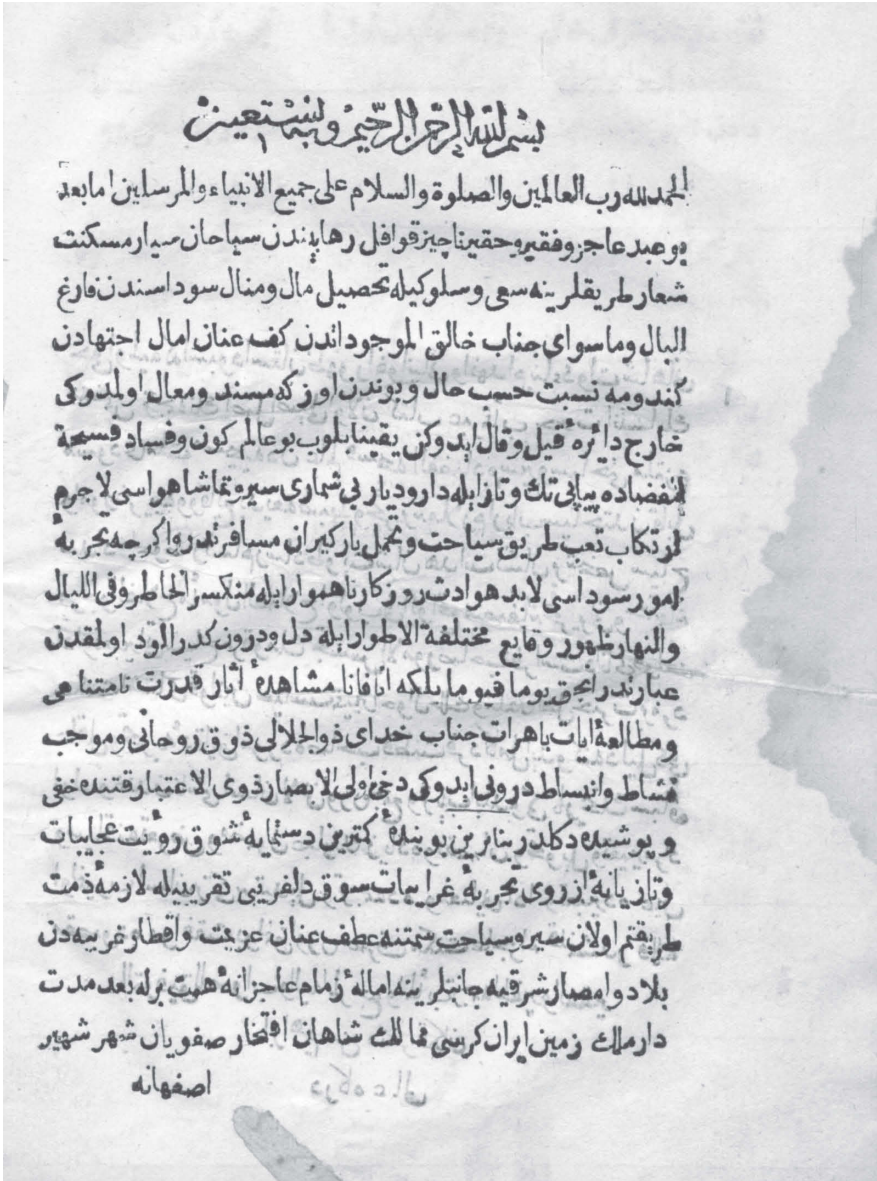 بسم الله الرحمن الرحيم وبه نستعين
الحمد لله رب العالمين والصلوة والسلام على جميع الانبياء والمرسلين اما بعد
بو عبد عاجز وفقير وحقير ناچيز قوافل رهابيندن سياحان سيار مسكنت
شعار طريقلرينه سعى وسلوكيله تحصيل مال ومنال سوداسندن فارغ
البال وماسواى جناب خالق الموجوداتدن كف عنان امال اجتهادن
كندومه نسبت حسب حال وبوندن اوزكه مسند ومعال اولمدوكى
خارج دائرهٔ قيل وقال ايدوكن يقينا بلوب بو عالم كون وفساد فسيحة
الفضاده پياپى تك وتاز ايله دار وديار بى شمارى سير وتماشا هواسى لاجرم
مرتكاب تعب طريق سياحت وتحمل باركيران مسافرتدر واكرچه تجربهٔ
امور سوداسى لابد هوادث روزكار ناهموار ايله منكسر الخاطر وفى الليال
والنهار ظهور وقايع مختلفة الاطوار ايله دل ودرون كدر الود اولمقدن
عبارتدر انجق يوما فيوما بلكه انا فانا مشاهدهٔ اثار قدرت نامتناهى
ومطالعهٔ ايات باهرات جناب خداى ذو الجلالى ذوق روحانى وموجب
نشاط وانبساط درونى ايدوكى دخى اولى الابصار ذوى الاعتبار قتنده خفى
وپوشيده دكلدر بنابرين بو بندهٔ كمترين دستمايهٔ شوق رؤيت عجايبات
وتازيانهٔ ازروى تجربهٔ غرايبات سوق دلفريبى تقريبيله لازمهٔ ذمت
طريقتم اولان سير وسياحت سمتنه عطف عنان عزيمت واقطار غريبه دن
بلاد وامصار شرقيه جانبلرينه امالهٔ زمام عاجزانهٔ همت برله بعد مدت
دار ملك زمين ايران كرسى ممالك شاهان افتخار صفويان شهر شهير
اصفهانه